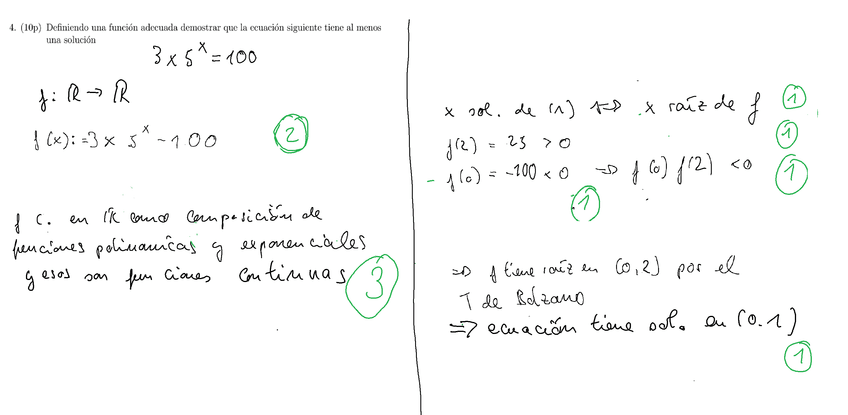 4. (10p) Definiendo una función adecuada demostrar que la ecuación siguiente tiene al menos
una solución
3 x 5^x = 100
f: ℝ → ℝ
f(x) := 3x 5^x - 100
2
f c. en ℝ como composición de
funciones polinomicas y exponenciales
y esos son funciones continuas
3
x sol. de (1) <=> x raíz de f
1
f(2) = 25 > 0
1
- f(0) = -100 < 0 => f(0) f(2) < 0
1
1
=> f tiene raíz en (0,2) por el
T de Bolzano
=> ecuación tiene sol. en (0.1)
1